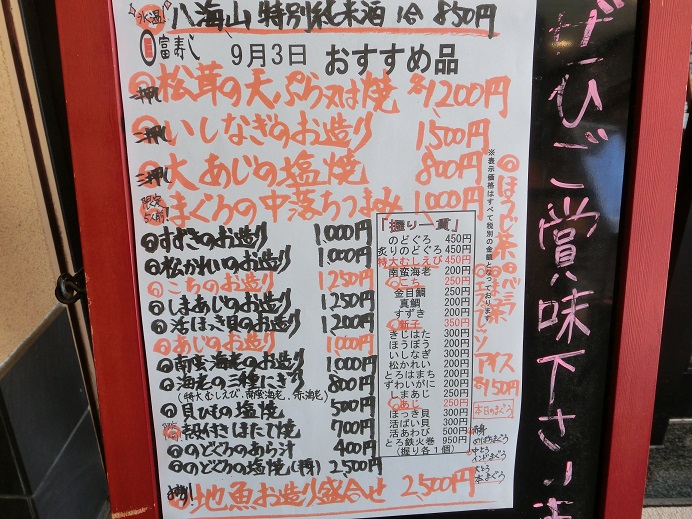 氷温! 八海山 特別純米酒 1合 850円
富寿し 9月3日 おすすめ品
一押し 松茸の天ぷら又は焼 各1200円
二押し いしなぎのお造り 1,500円
三押し 大あじの塩焼 800円
限定5人前! まぐろの中落ちつまみ 1,000円
すずきのお造り 1,000円
松かれいのお造り 1,000円
こちのお造り 1,250円
しまあじのお造り 1,250円
活ほっき貝のお造り 1,200円
あじのお造り 1,000円
南蛮海老のお造り 1,000円
海老の三種にぎり 800円
(特大むしえび、南蛮海老、赤海老)
貝ひもの塩焼 500円
殻付きほたて焼 700円
のどぐろのあら汁 400円
のどぐろの塩焼(特) 2,500円
地魚お造り盛合せ 2,500円
「握り一貫」
のどぐろ 450円
炙りのどぐろ 450円
特大むしえび 450円
南蛮海老 200円
こち 250円
金目鯛 250円
真鯛 200円
すずき 200円
新子 350円
きじはた 300円
ほうぼう 200円
いしなぎ 300円
松かれい 200円
とろはまち 200円
ずわいがに 250円
しまあじ 250円
あじ 250円
ほっき貝 300円
活ばい貝 300円
活あわび 500円
とろ鉄火巻 950円
(握り各1個)
※表示価格はすべて税別の金額となっております
ほうじ茶
エスプレッソ
アイス
各150円
本日のまぐろ
赤身
めばちまぐろ
中とろ
インドまぐろ
大とろ
本まぐろ
ぜひご賞味下さいま